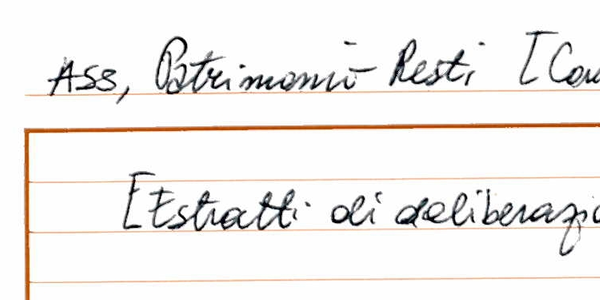 Ass, Patrimonio Resti [Con
[Estratti di deliberazio